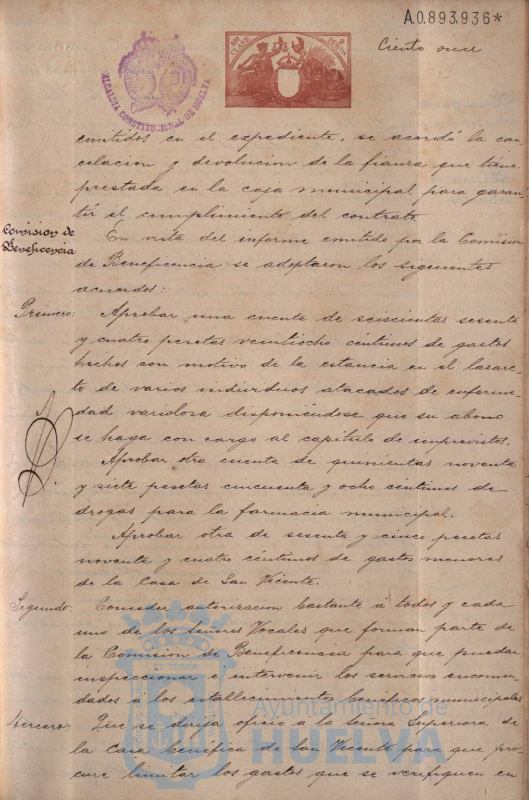 A.0.893.936*
Ciento once
ALCALDIA CONSTITUCIONAL DE HUELVA
CLASE
emitidos en el expediente, se acordó la can-
celacion y devolucion de la fianza que tiene
prestada en la caja municipal para garan-
tir el cumplimiento del contrato
Comision de
Beneficencia
En vista del informe emitido por la Comision
de Beneficencia se adoptaron los siguientes
acuerdos:
Primero: Aprobar una cuenta de seiscientas sesenta
y cuatro pesetas veintiocho céntimos de gastos
hechos con motivo de la estancia en el lasare-
to de varios individuos atacados de enferme-
dad variolosa disponiéndose que su abono
se haga con cargo al capítulo de imprevistos.
Aprobar otra cuenta de quinientas noventa
y siete pesetas cincuenta y ocho céntimos de
drogas para la farmacia municipal.
Aprobar otra de sesenta y cinco pesetas
noventa y cuatro céntimos de gastos menores
de la Casa de San Vicente.
Segundo: Conceder autorizacion bastante á todos y cada
uno de los Señores Vocales que forman parte de
la Comision de Beneficencia para que puedan
inspeccionar é intervenir los servicios encomen-
dados á los establecimientos benéficos municipales
Tercero: Que se dirija oficio á la Señora Superiora de
la Casa benéfica de San Vicente para que pro-
cure limitar los gastos que se verifiquen en
Ayuntamiento de
HUELVA